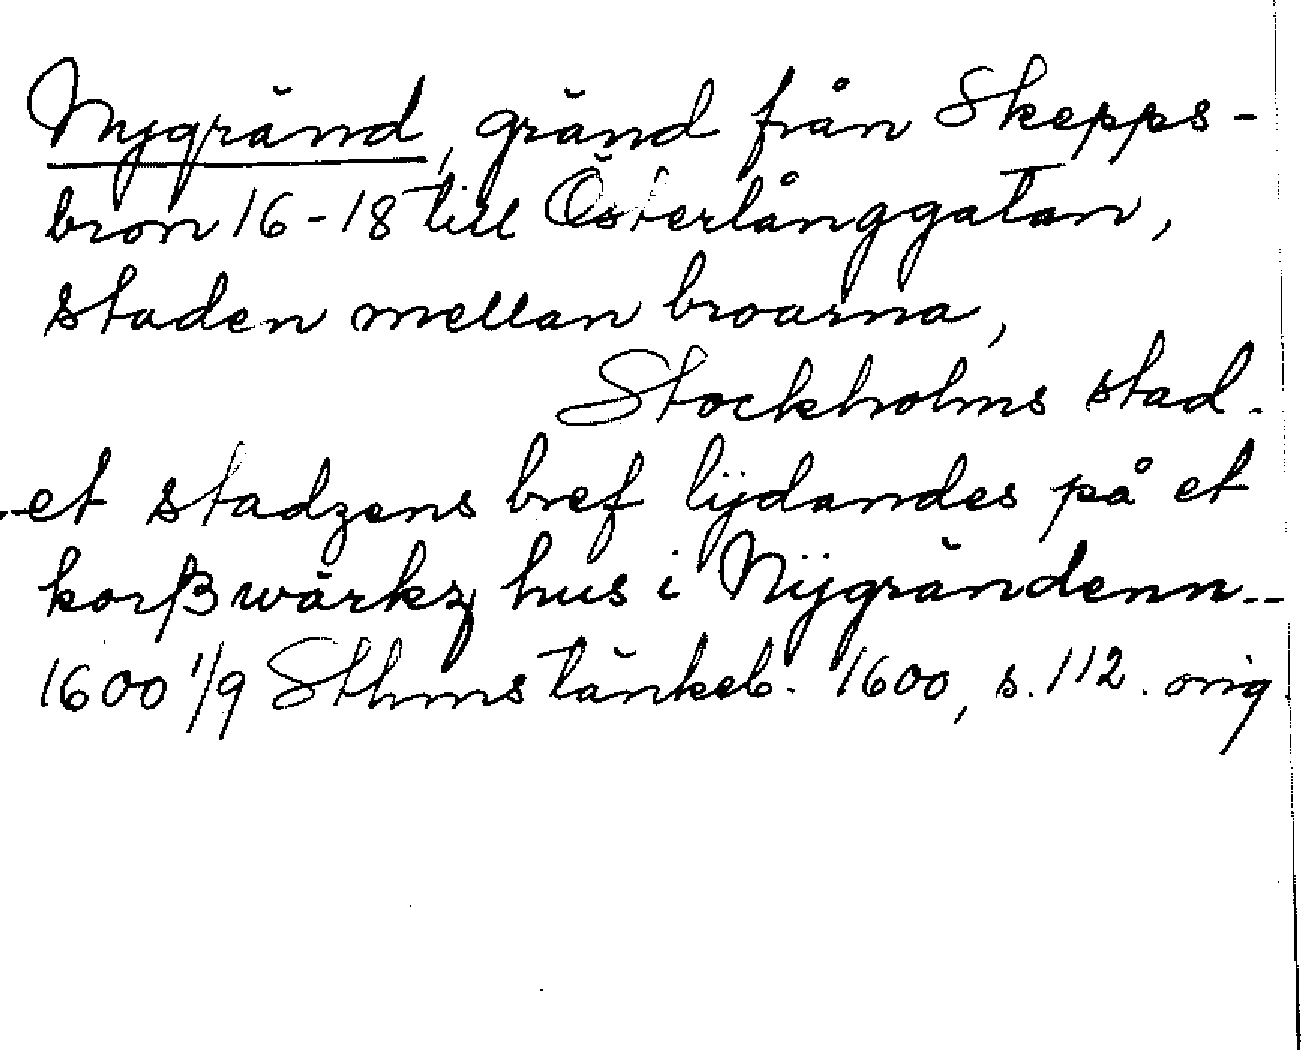 Nygränd, gränd från Skepps-
bron 16-18 till Österlånggatan,
staden mellan broarna,
Stockholms stad.
..et stadzens bref lijdandes på et
korßwärkz hus i Nÿgrändenn..
1600 1/9 Sthms tänkeb. 1600, s. 112. orig.